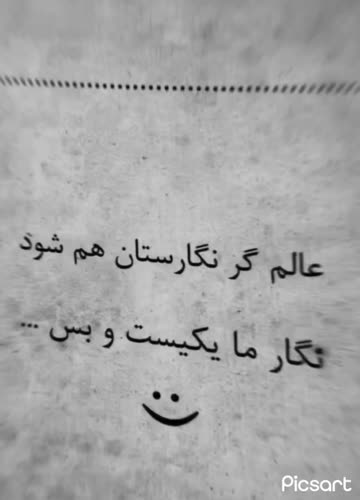 عالم گر نگارستان هم شود
نگار ما یکیست و بس ...
Picsart